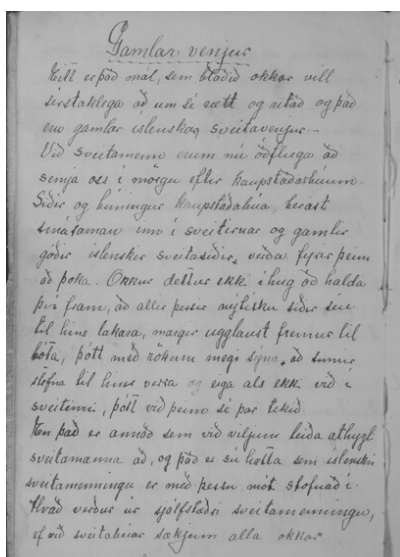 Gamlar venjur
Eitt er það mál, sem blaðið okkar vill
sérstaklega að um sé rætt og ritað og það
eru gamlar íslenskar sveitavenjur. -
Við sveitamenn erum nú óðfluga að
semja oss í mörgu eftir kaupstaðarbúum.
Siðir og búningur kaupstaðabúa, berast
smásaman inn í sveitirnar og gamlir
góðir íslenskir sveitasiðir verða fyrir þeim
að þoka. Okkur dettur ekk í hug að halda
því fram, að allir þessir nýtísku siðir séu
til hins lakara, margir ugglaust fremur til
bóta, þótt með rökum megi sýna, að sumir
stefna til hins verra og eiga als ekk við í
sveitinni, þótt við þeim sé þar tekið.
En það er annað sem við viljum leiða athygl
sveitamanna að, og það er sú hætta sem íslenskri
sveitamenningu er með þessu mót stofnað í.
Hvað verður úr sjálfstæðri sveitamenningu,
ef við sveitabúar sækjum alla okkar